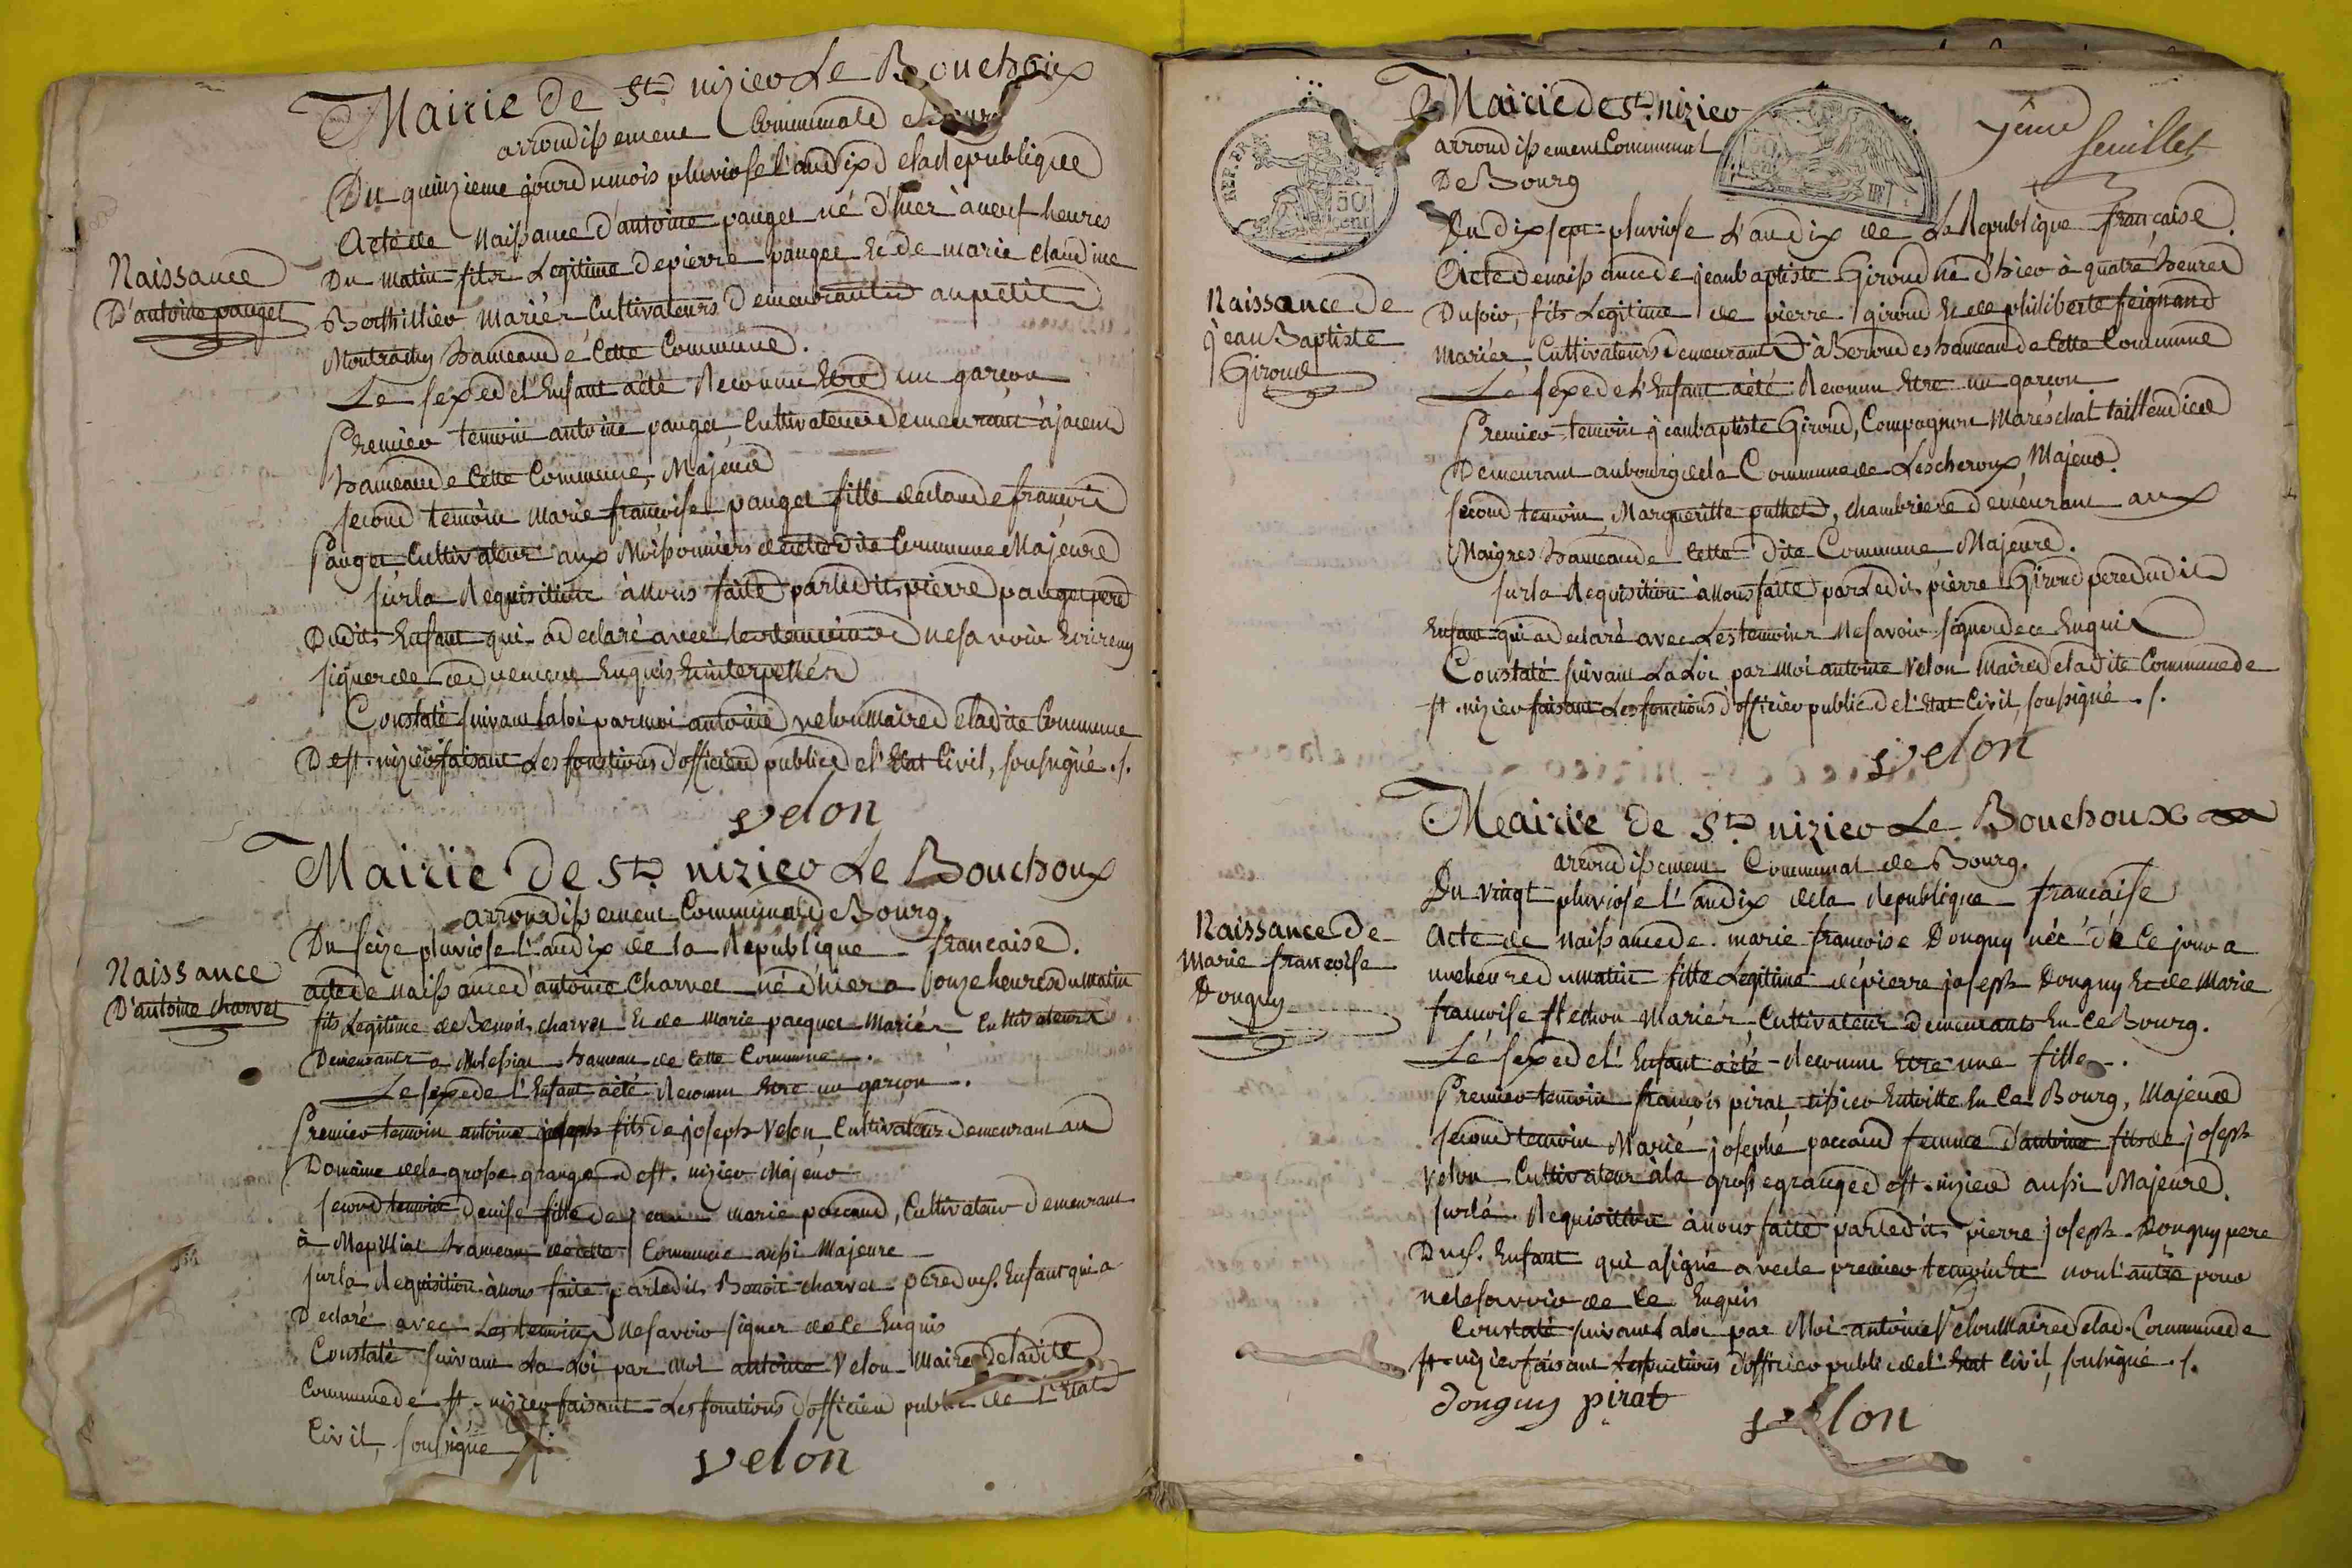 Mairie de St. nizier Le Bouchoux
arrondissement Communal de
Du quinzieme jour du mois pluviose l'an dix de la republique
Acte de Naissance d'antoine pauget né d'hier à neuf heures
Du matin fils Legitime de pierre pauget Et de marie claudine
Berthillier Mariés Cultivateurs demeurants au petit
hameau de Cette Commune.
Le sexe de l'Enfant a été Reconnu Etre un garçon
Premier temoin antoine pauget Cultivateur demeurant à
hameau de Cette Commune, Majeur
second temoin marie francoise pauget fille de claude francois
Pauget Cultivateur aux Moissonniers de cette dite Commune Majeure
sur la Requisition à Nous faite par ledit pierre pauget pere
Dudit Enfant qui a declaré avec les temoins ne savoir Ecrire ny
signer de ce duement Enquis Et interpellés
Constaté suivant la loi par moi antoine velon maire de la dite Commune
De st. nizier faisant Les fonctions d'officier public de l'Etat Civil, soussigné ./.
velon
Naissance
D'antoine pauget
Mairie de St. nizier Le Bouchoux
arrondissement Communal de Bourg.
Du seize pluviose l'an dix de la Republique francaise.
acte de naissance d'antoine Charvet né d'hier a onze heures du matin
fils Legitime de Benoit charvet Et de marie pacquet Mariés Cultivateurs
Demeurants a hameau de Cette Commune.
Le sexe de l'Enfant a été Reconnu Etre un garçon.
Premier temoin antoine joseph fils de joseph Velon Cultivateur demeurant au
Domaine de la grosse grange de st. nizier Majeur
second temoin denise fille de jean marie paccoud, Cultivateur demeurant
à hameau de cette Commune aussi Majeure
sur la Requisition à nous faite par ledit Benoit charvet pere du s. Enfant qui a
Declaré avec Les temoins ne savoir signer de ce Enquis
Constaté suivant La Loi par moi antoine Velon Maire de la dite
Commune de st. nizier faisant Les fonctions d'officier public de l'Etat
Civil, soussigné ./.
velon
Naissance
D'antoine charvet
Mairie de St. nizier
arrondissement Communal
De Bourg
feuillet
REP. FRA.
50
cent
Du dix sept pluviose L'an dix de La Republique française.
Acte de naissance de jean baptiste Giroud né d'hier à quatre heures
Du soir, fils Legitime de pierre giroud Et de philiberte feignand
Mariés Cultivateurs demeurants à Beroudes hameau de Cette Commune
Le sexe de l'Enfant a été Reconnu Etre un garçon
Premier temoin jean baptiste Giroud, Compagnon Maréschal taillendier
Demeurant au bourg de la Commune de Lescheroux, Majeur.
second temoin, Margueritte puthet, chambriere demeurant aux
Maigres hameau de Cette dite Commune, Majeure.
sur la Requisition à Nous faite par Ledit pierre Giroud pere dudit
Enfant qui a declaré avec Les temoins Ne savoir signer de ce Enquis
Constaté suivant La Loi par Moi antoine Velon Maire de la dite Commune de
st. nizier faisant Les fonctions d'officier public de l'Etat Civil, soussigné ./.
velon
Naissance De
jean Baptiste
Giroud
Mairie de St. nizier Le Bouchoux
arrondissement Communal de Bourg.
Du vingt pluviose l'an dix de la Republique francaise
Acte de Naissance de marie francoise Donguy née de Ce jour a
une heure du matin fille Legitime de pierre joseph Donguy Et de Marie
francoise flechon Mariés Cultivateur demeurants En Ce Bourg.
Le sexe de l'Enfant a été Reconnu Etre une fille.
Premier temoin francois pirat tissier Entoille En Ce Bourg, Majeur
second temoin Marie josephe paccoud femme d'antoine fils de joseph
Velon Cultivateur à la grosse grange de st. nizier aussi Majeure.
sur la Requisition à nous faite par ledit pierre joseph Donguy pere
Du s. Enfant qui a signé avec le premier temoin Et non l'autre pour
ne le savoir de Ce Enquis
Constaté suivant la loi par Moi antoine Velon Maire de la d. Commune de
st. nizier faisant Les fonctions d'officier public de l'Etat Civil, soussigné ./.
donguy pirat
velon
Naissance De
Marie francoise
Donguy